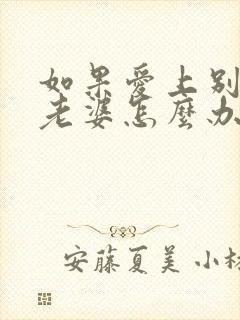 如果愛上別
老婆怎麼办
安藤夏美 小林